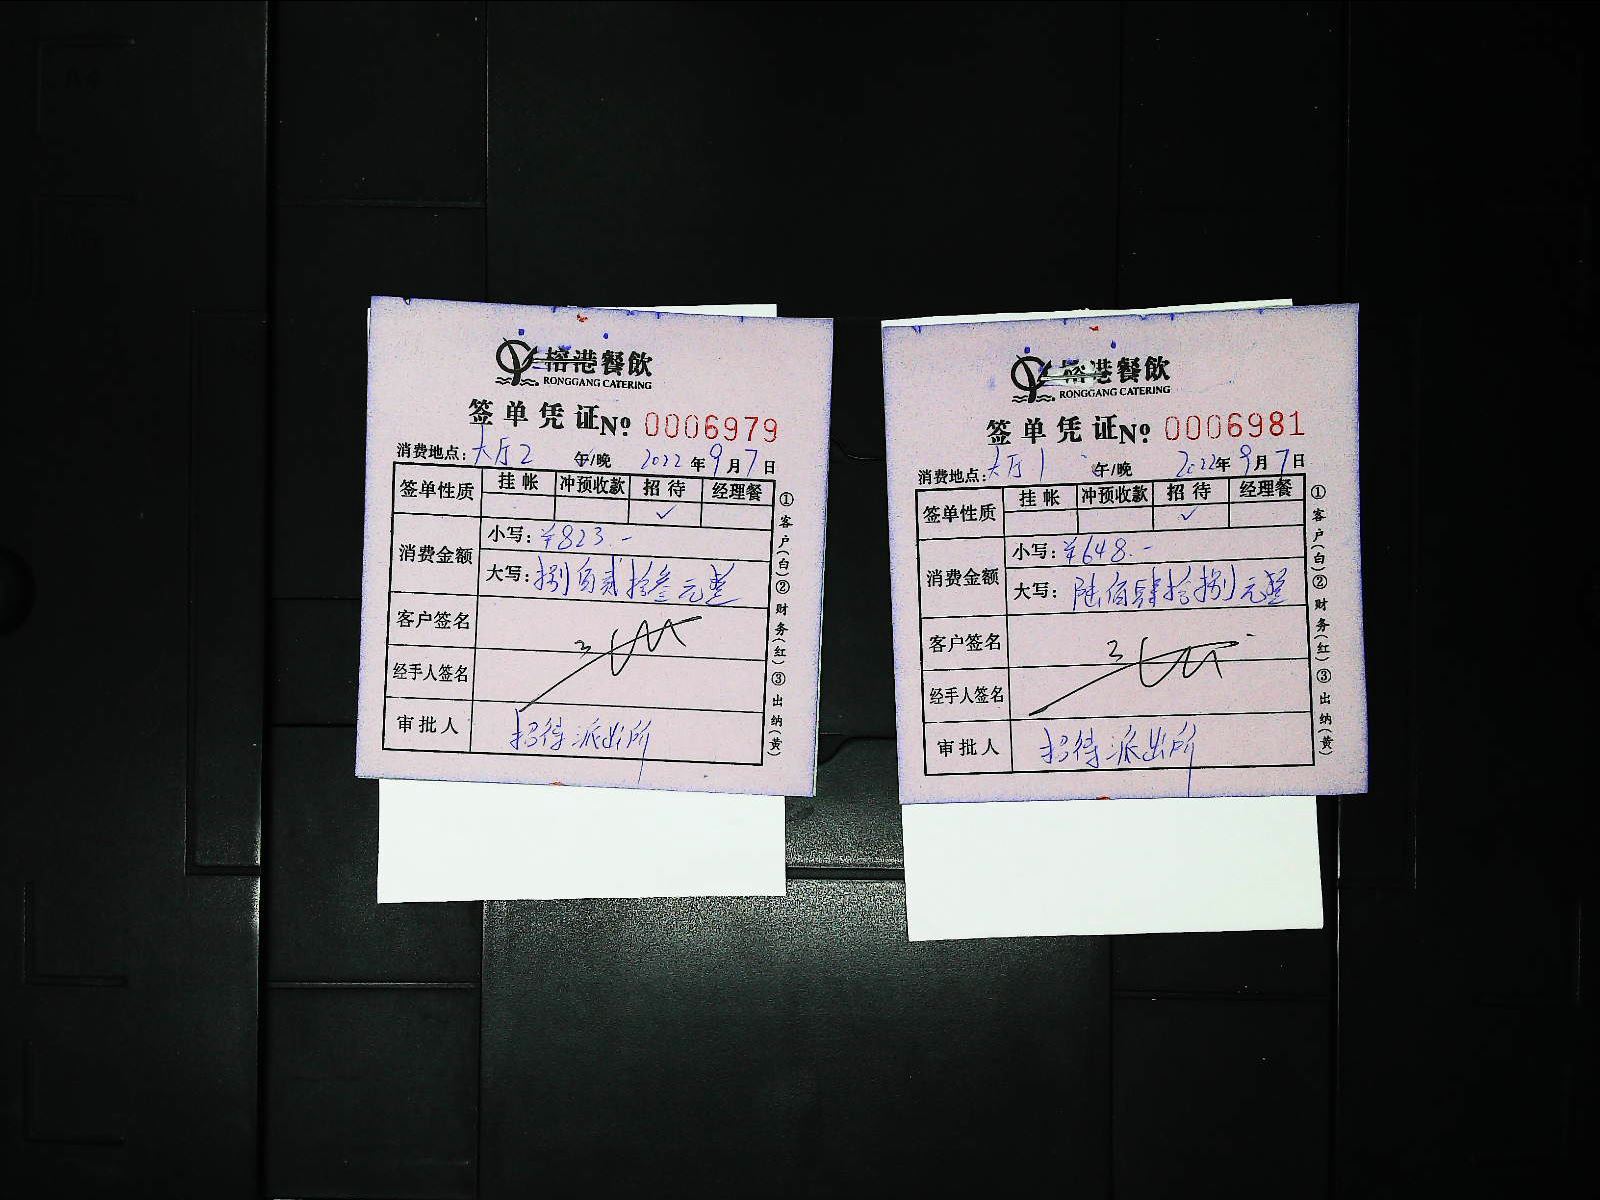 榕港餐飲
RONGGANG CATERING
签单凭证 № 0006979
消费地点: 大厅2 午/晚 2022年9月7日
签单性质 挂帐 冲预收款 招待 经理餐
✓
消费金额 小写: ¥823.-
大写: 捌佰贰拾叁元整
客户签名
经手人签名
审批人 招待派出所
①客户(白)②财务(红)③出纳(黄)
榕港餐飲
RONGGANG CATERING
签单凭证 № 0006981
消费地点: 大厅1 午/晚 2022年9月7日
签单性质 挂帐 冲预收款 招待 经理餐
✓
消费金额 小写: ¥648.-
大写: 陆佰肆拾捌元整
客户签名
经手人签名
审批人 招待派出所
①客户(白)②财务(红)③出纳(黄)